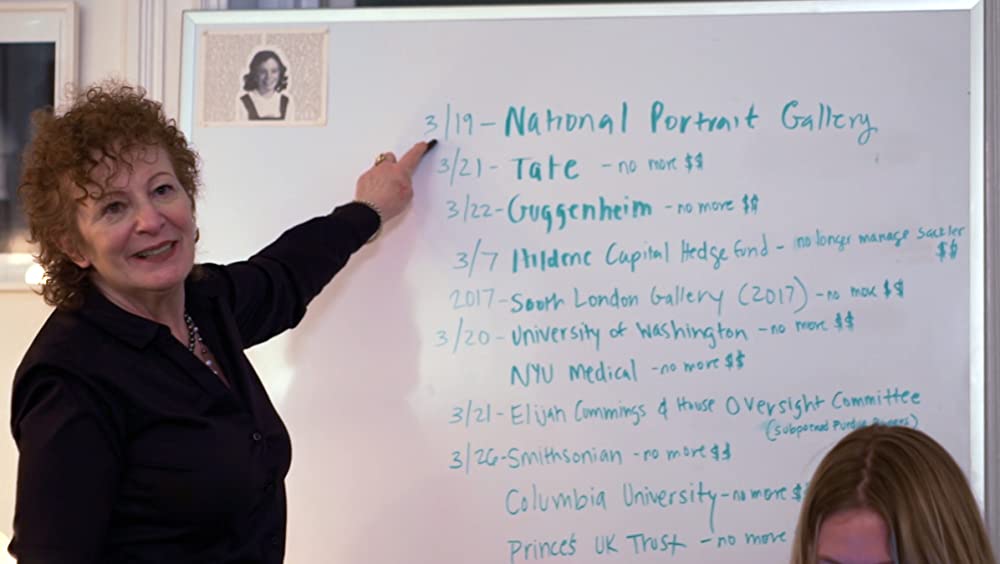 3/19 - National Portrait Gallery
3/21 - Tate - no more $$
3/22 - Guggenheim - no more $$
3/7 Hildene Capital Hedge Fund - no longer manage Sackler $$
2017 - South London Gallery (2017) - no more $$
3/20 - University of Washington - no more $$
NYU Medical - no more $$
3/21 - Elijah Cummings & House Oversight Committee
(subpoenaed Purdue
3/26 - Smithsonian - no more $$
Columbia University - no more $
Prince's UK Trust - no more